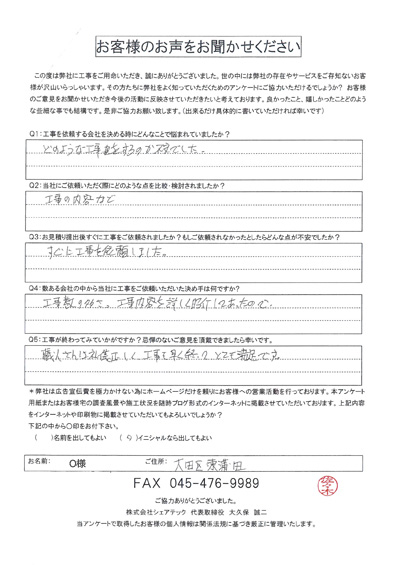 お客様のお声をお聞かせください
この度は弊社に工事をご用命いただき、誠にありがとうございました。世の中には弊社の存在やサービスをご存知ないお客
様が沢山いらっしゃいます。その方たちに弊社をよく知っていただくためのアンケートにご協力いただけるでしょうか? お客様
のご意見をお聞かせいただき今後の活動に反映させていただきたいと考えております。良かったこと、嬉しかったことどのよう
な些細な事でも結構です。是非ご協力お願い致します。(出来るだけ具体的に書いていただければ幸いです)
Q1:工事を依頼する会社を決める時にどんなことで悩まれていましたか?
どのような工事をするのか不安でした。
Q2:当社にご依頼いただく際にどのような点を比較・検討されましたか?
工事の内容
Q3:お見積り提出後すぐに工事をご依頼されましたか?もしご依頼されなかったとしたらどんな点が不安でしたか?
すぐに工事を依頼しました。
Q4:数ある会社の中から当社に工事をご依頼いただいた決め手は何ですか?
工事内容を詳しく紹介してあったので。
Q5:工事が終わってみていかがですか?忌憚のないご意見を頂戴できましたら幸いです。
職人さんは礼儀正しく、工事も早く終り、とても満足です。
*弊社は広告宣伝費を極力かけない為にホームページだけを頼りにお客様への営業活動を行っております。本アンケート
用紙またはお客様宅の調査風景や施工状況を随時ブログ形式のインターネットに掲載させていただいております。上記内容
をインターネットや印刷物に掲載させていただいてもよろしいでしょうか?
下記の中から〇印をお付下さい。
( )名前を出してもよい ( 〇 )イニシャルなら出してもよい
お名前: O様 ご住所: 大田区東蒲田
FAX 045-476-9989
ご協力ありがとうございました。
株式会社シェアテック 代表取締役 大久保 誠二
当アンケートで取得したお客様の個人情報は関係法規に基づき厳正に管理いたします。